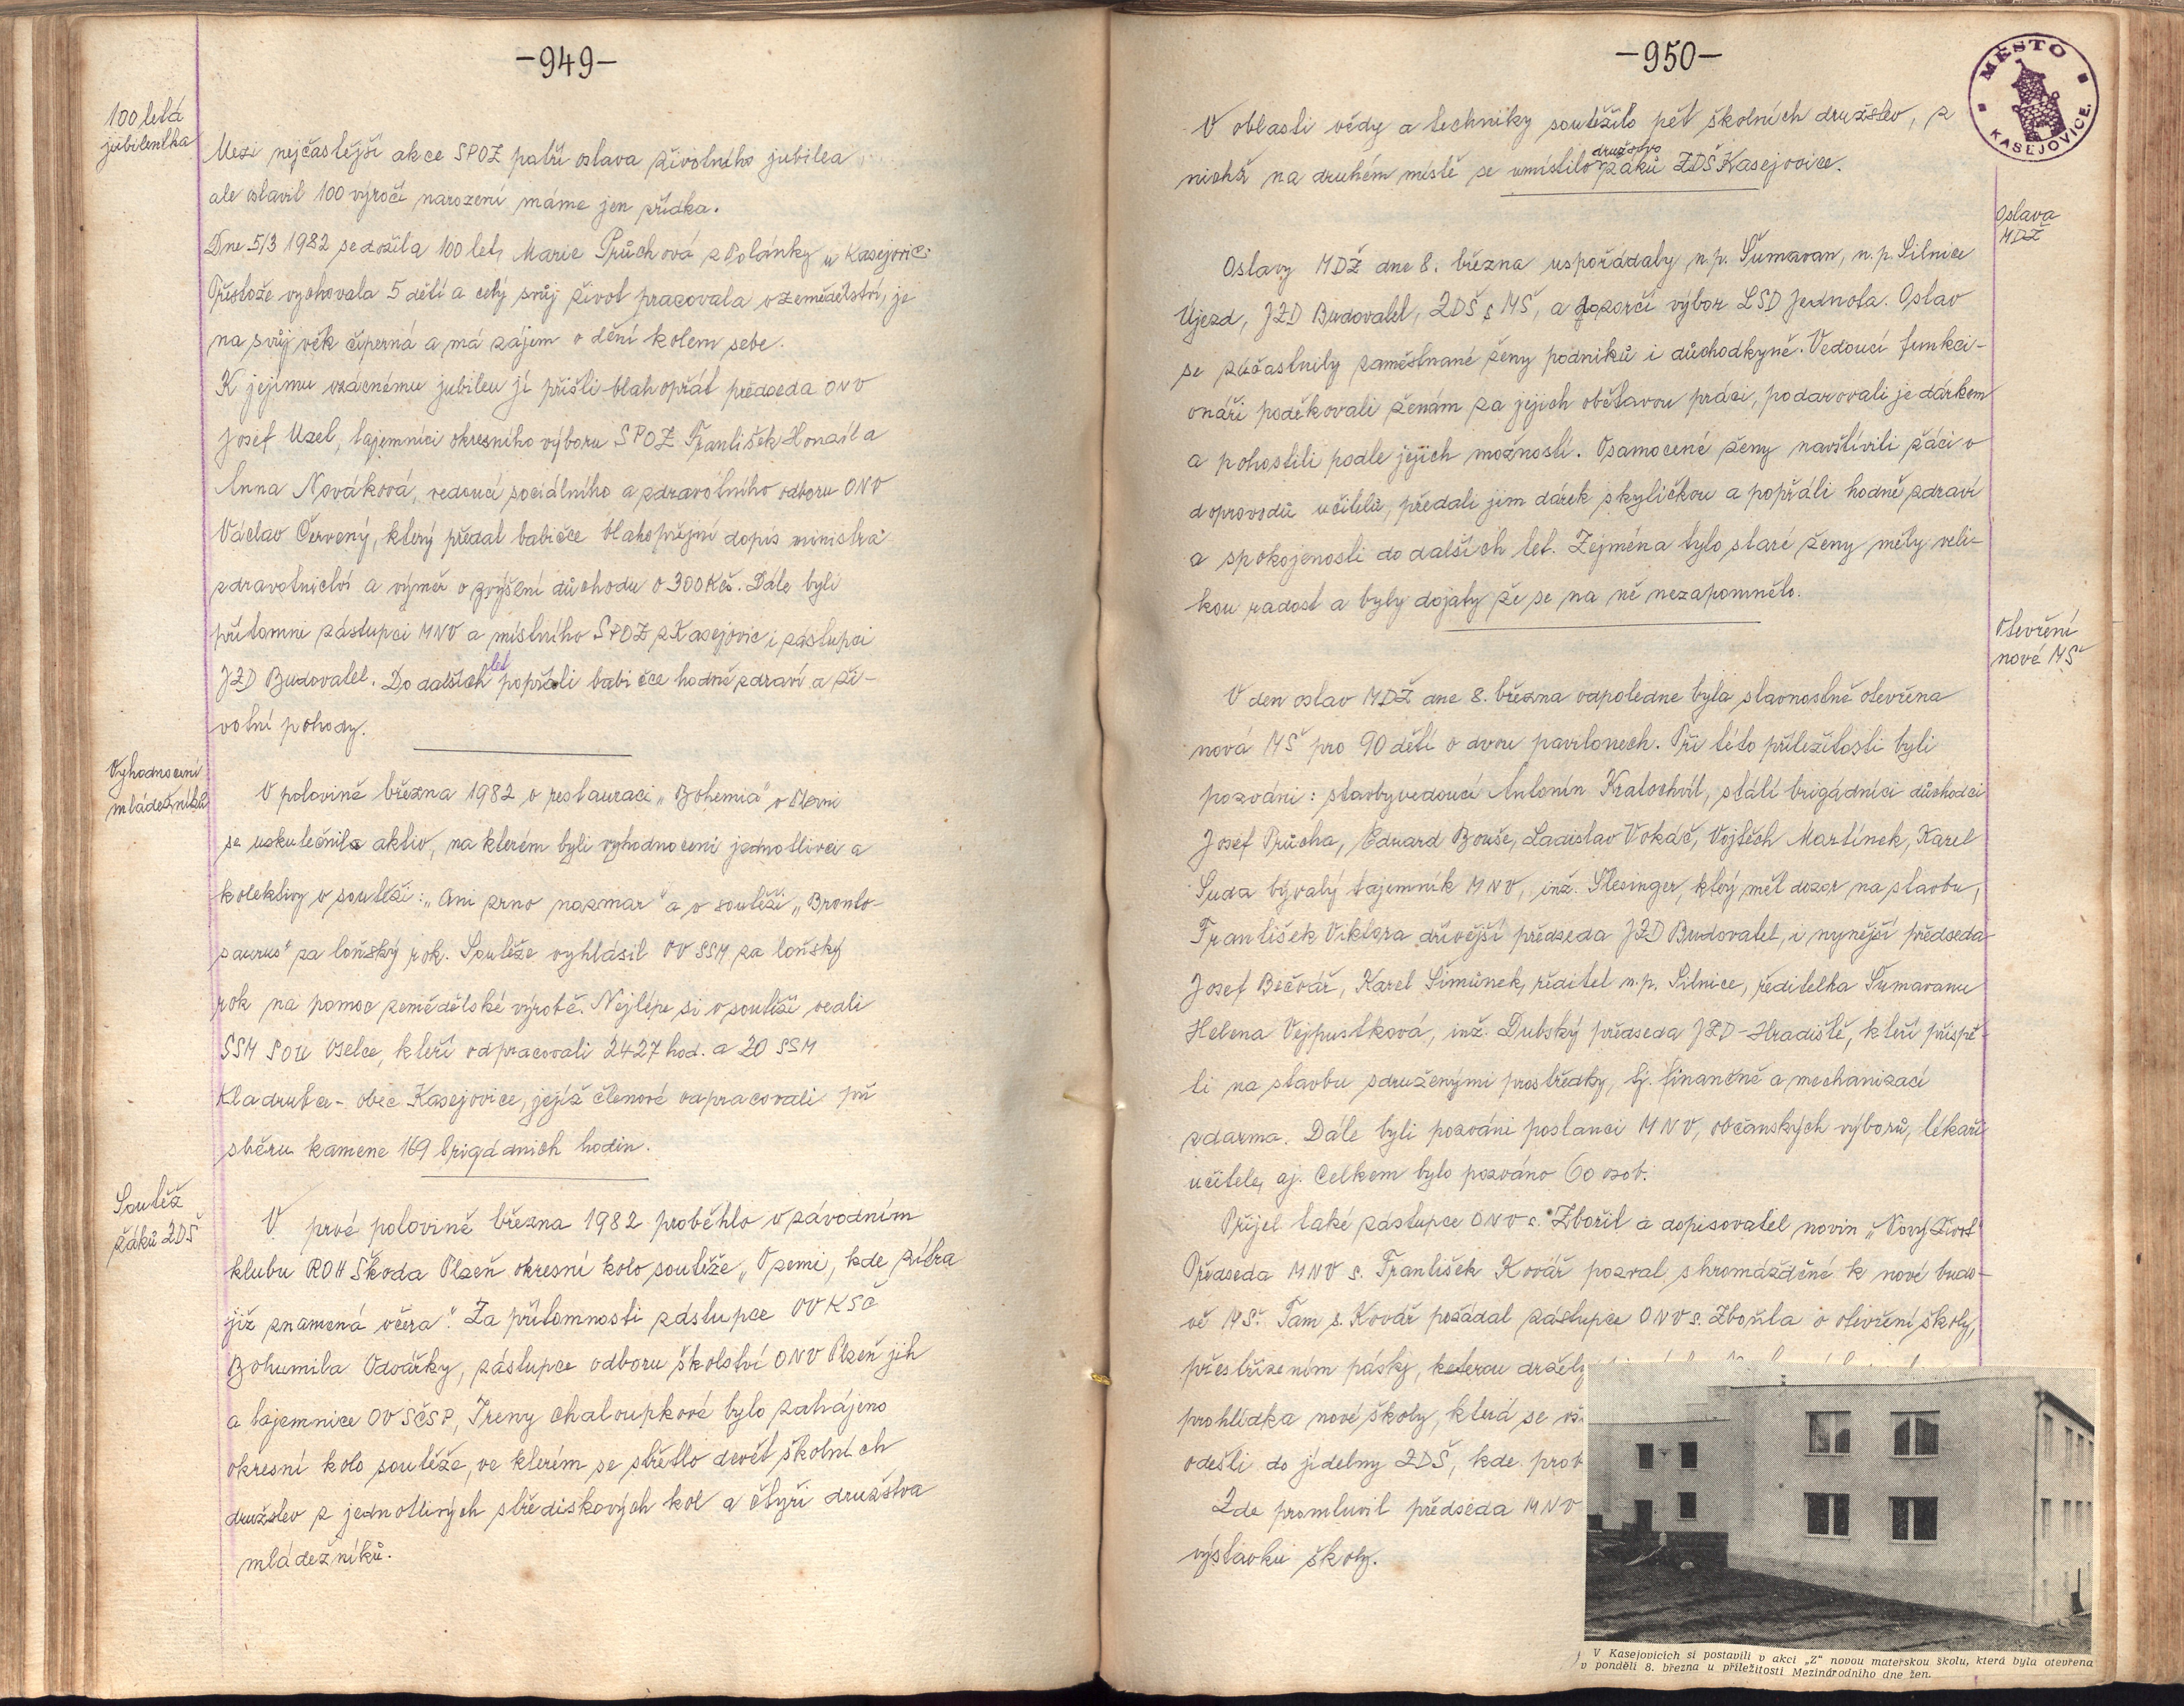 -949-
100 letá
jubilentka
Mezi nejčastější akce SPOZ patří oslava životního jubilea
ale oslavil 100 výročí narození máme jen zřídka.
Dne 5/3 1982 se dožila 100 let, Marie Průchová z Polánky u Kasejovic.
Přestože vychovala 5 dětí a celý svůj život pracovala v zemědělství, je
na svůj věk čiperná a má zájem o dění kolem sebe.
K jejímu vzácnému jubileu jí přišli blahopřát předseda ONV
Josef Uzel, tajemníci okresního výboru SPOZ František Honzíl a
Anna Nováková, vedoucí sociálního a zdravotního odboru ONV
Václav Červený, který předal babičce blahopřejní dopis ministra
zdravotnictví a výměr o zvýšení důchodu o 300 Kčs. Dále byli
přítomni zástupci MNV a místního SPOZ z Kasejovic i zástupci
JZD Budovatel. Do dalších let popřáli babičce hodně zdraví a ži-
votní pohody.
Vyhodnocení
mládežníků
V polovině března 1982 v restauraci „Bohemia" v
se uskutečnila aktiv, na kterém byli vyhodnoceni jednotlivci a
kolektivy v soutěži: „Ani zrno nazmar" a v soutěži „Bronto-
saurus" za loňský rok. Soutěže vyhlásil OV SSM za loňský
rok na pomoc zemědělské výrobě. Nejlépe si v soutěži vedli
SSM SOU Oselce, kteří odpracovali 2427 hod. a ZO SSM
Kladrubce - obec Kasejovice, jejíž členové odpracovali při
sběru kamene 169 brigádních hodin.
Soutěž
žáků ZDŠ
V prvé polovině března 1982 proběhlo v závodním
klubu ROH Škoda Plzeň okresní kolo soutěže „V zemi, kde zítra
již znamená včera". Za přítomnosti zástupce OV KSČ
Bohumila Odvářky, zástupce odboru školství ONV Plzeň jih
a tajemnice OV SČSP, Ireny Chaloupkové bylo zahájeno
okresní kolo soutěže, ve kterém se střetlo devět školních
družstev z jednotlivých střediskových kol a čtyři družstva
mládežníků.
-950-
MĚSTO
KASEJOVICE.
V oblasti vědy a techniky soutěžilo pět školních družstev, z
nichž na druhém místě se umístilo družstvo žáků ZDŠ Kasejovice.
Oslava
MDŽ
Oslavy MDŽ dne 8. března uspořádaly, n.p. Šumavan, n.p. Silnice
Újezd, JZD Budovatel, ZDŠ s MŠ, a dozorčí výbor LSD Jednota. Oslav
se zúčastnily zaměstnané ženy podniků i důchodkyně. Vedoucí funkci-
onáři poděkovali ženám za jejich obětavou práci, podarovali je dárkem
a pohostili podle jejich možností. Osamocené ženy navštívili žáci v
doprovodů učitelů, předali jim dárek s kyličkou a popřáli hodně zdraví
a spokojenosti do dalších let. Zejména tyto staré ženy měly veli-
kou radost a byly dojaty že se na ně nezapomnělo.
Otevření
nové MŠ
V den oslav MDŽ dne 8. března odpoledne byla slavnostně otevřena
nová MŠ pro 90 dětí o dvou pavilonech. Při této příležitosti byli
pozváni: stavbyvedoucí Antonín Kratochvíl, stálí brigádníci důchodci
Josef Průcha, Eduard Bouše, Ladislav Vokáč, Vojtěch Martínek, Karel
Suda bývalý tajemník MNV, inž. Slesinger, který měl dozor na stavbu,
František Viktora dřívější předseda JZD Budovatel, i nynější předseda
Josef Bečvář, Karel Šimůnek, ředitel n.p. Silnice, ředitelka Šumavanu
Helena Vejpustková, inž. Dubský předseda JZD-Hradiště, kteří přispě-
li na stavbu sdruženými prostředky, tj. finančně a mechanizací
zdarma. Dále byli pozváni poslanci MNV, občanských výborů, lékaři
učitelé, aj. Celkem bylo pozváno 60 osob.
Přijel také zástupce ONV s. Zbořil a dopisovatel novin „Nový Život"
Předseda MNV s. František Kovář pozval shromážděné k nové budo-
vě MŠ. Tam s. Kovář požádal zástupce ONV s. Zbořila o otevření školy,
přestřižením pásky, keterou držely
prohlídka nové školy, která se
odešli do jídelny ZDŠ, kde
Zde promluvil předseda MNV
výstavku školy.
V Kasejovicích si postavili v akci „Z" novou mateřskou školu, která byla otevřena
v pondělí 8. března u příležitosti Mezinárodního dne žen.